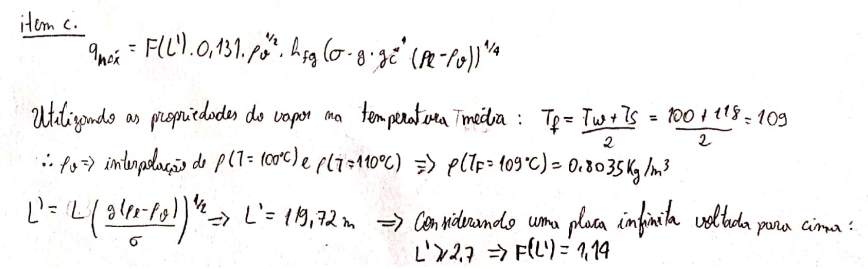 item c.
q_máx = F(L').0,131.ρ_v^1/2.h_fg (σ.g.g_c^-1 (ρ_l-ρ_v))^1/4
Utilizando as propriedades do vapor na temperatura Tmédia: T_f = (T_w+T_s)/2 = (100+118)/2 = 109
∴ ρ_v => interpolação de ρ(T=100°C) e ρ(T=110°C) => ρ(T_F=109°C) = 0.8035 Kg/m³
L' = L (g(ρ_l-ρ_v)/σ)^1/2 => L' = 119,72 m => Considerando uma placa infinita voltada para cima:
L' ≥ 2,7 => F(L') = 1,14